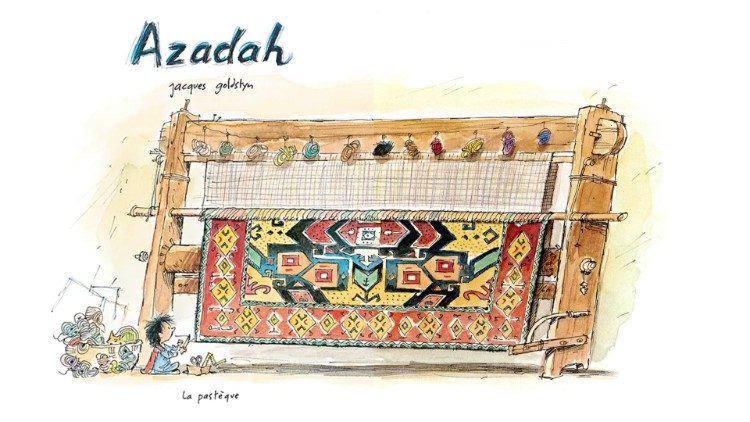 Azadah
jacques goldstyn
La pastèque